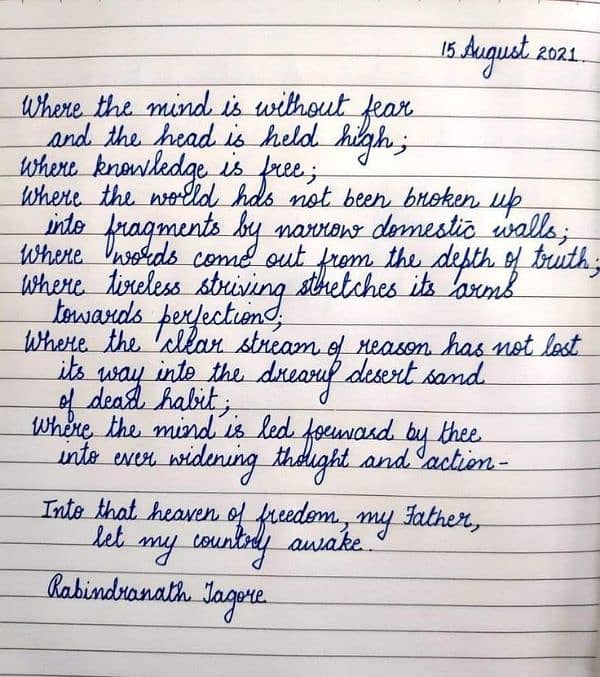 15 August 2021.
Where the mind is without fear
and the head is held high;
Where knowledge is free;
Where the world has not been broken up
into fragments by narrow domestic walls;
Where words come out from the depth of truth;
Where tireless striving stretches its arms
towards perfection;
Where the clear stream of reason has not lost
its way into the dreary desert sand
of dead habit;
Where the mind is led forward by thee
into ever widening thought and action-
Into that heaven of freedom, my Father,
let my country awake.
Rabindranath Tagore